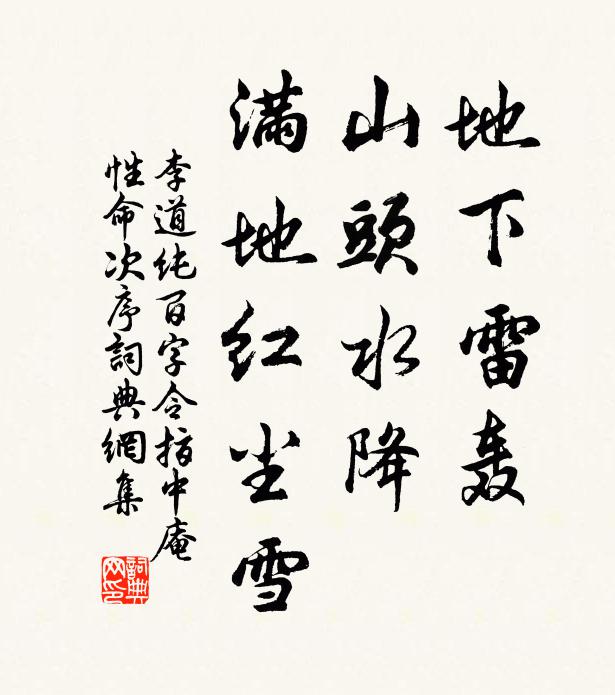 地下雷轰
山頭水降
满地红尘雪
李道纯百字令指中庵
性命次序詞典網集
詞典网印